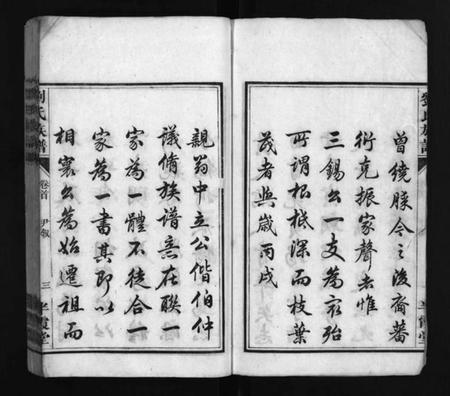 曾繞膝今之後裔蕃
衍克振家聲者惟
三錫公一支為最殆
所謂根柢深而枝葉
茂者與歲丙戌
親翁中立公偕伯仲
議脩族譜意在聯一
家為一體不徒合一
家為一書其即以
相寰公為始遷祖而
劉氏族譜
卷首
尹叙
三